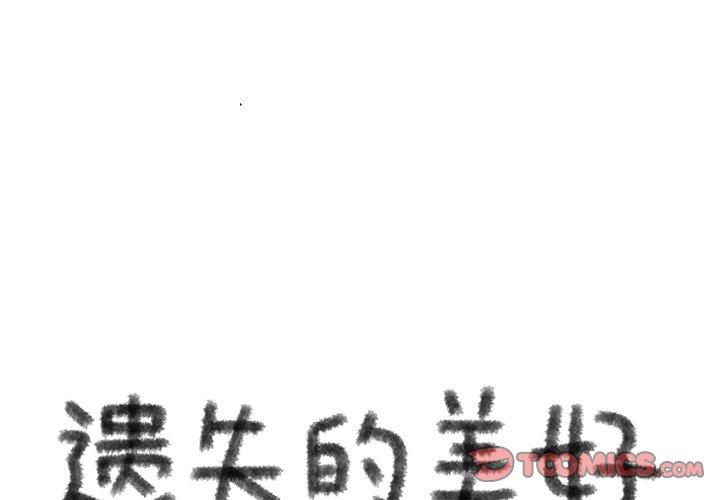 遗失的美好
TOOMICS.COM